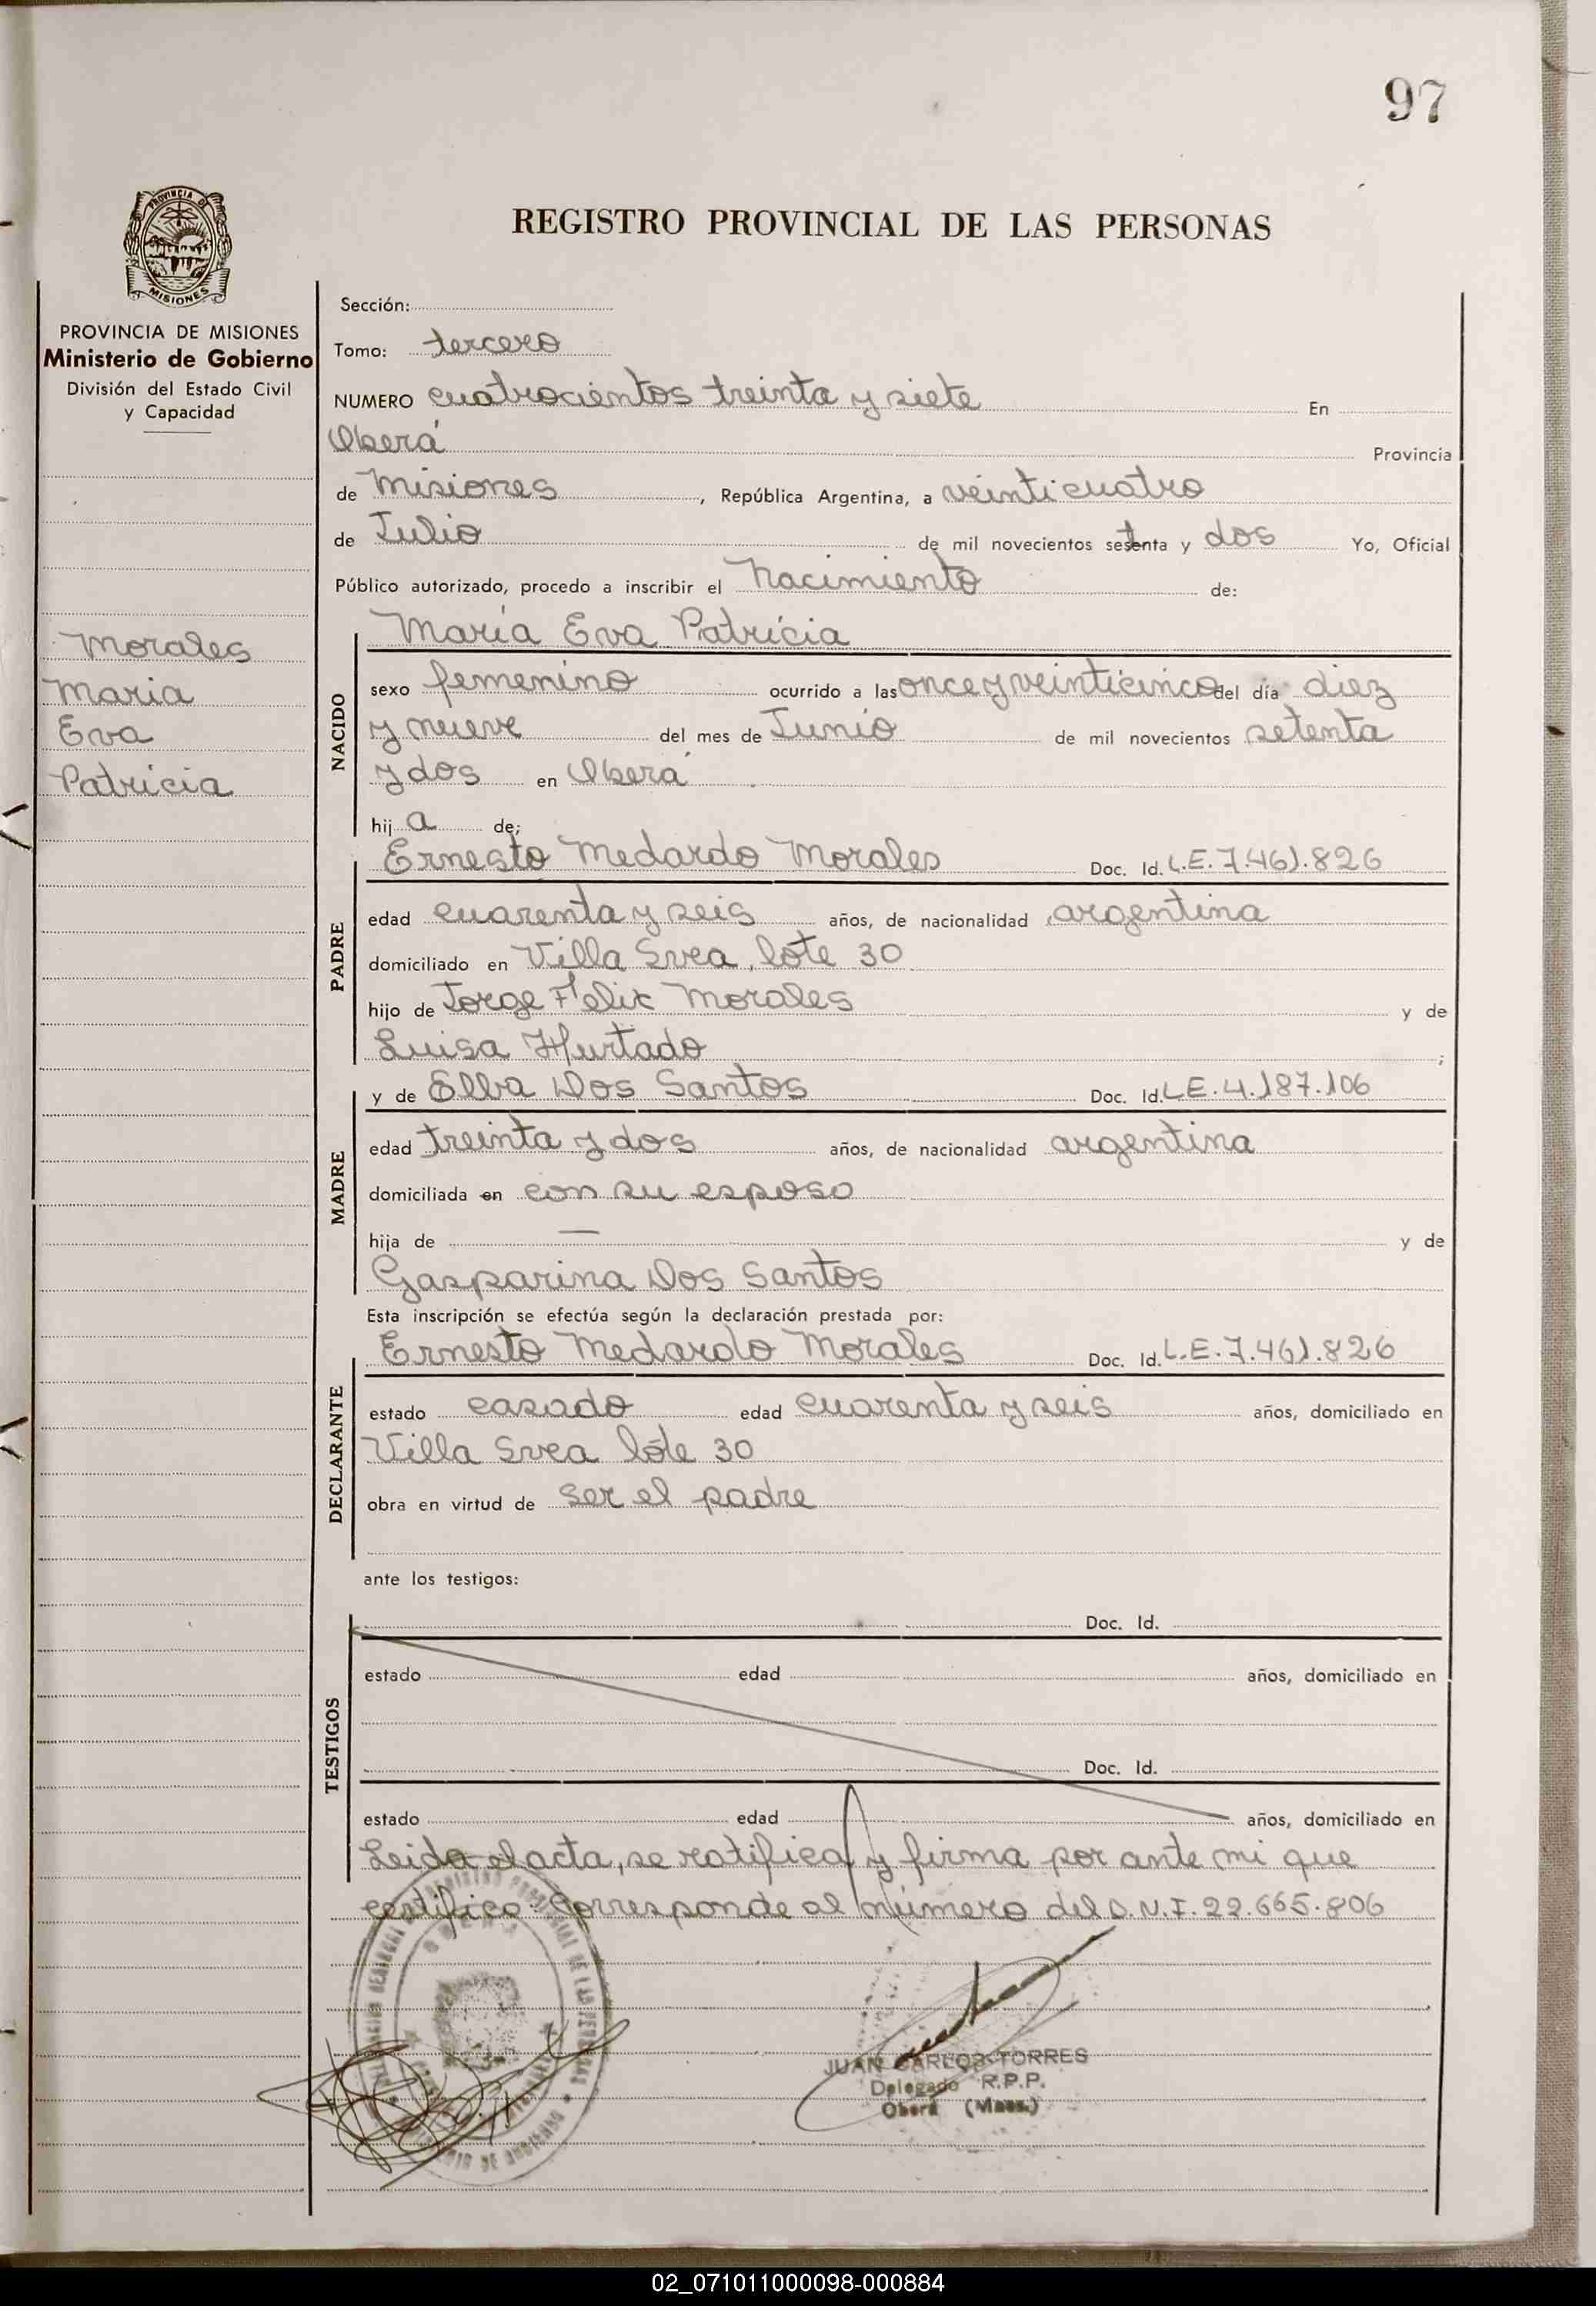 97
REGISTRO PROVINCIAL DE LAS PERSONAS
PROVINCIA DE MISIONES
PROVINCIA DE MISIONES
Ministerio de Gobierno
División del Estado Civil
y Capacidad
Morales
Maria
Eva
Patricia
Sección:
Tomo: tercero
NUMERO cuatrocientos treinta y siete En
Oberá Provincia
de Misiones, República Argentina, a veinticuatro
de Julio de mil novecientos setenta y dos Yo, Oficial
Público autorizado, procedo a inscribir el Nacimiento de:
NACIDO
María Eva Patricia
sexo femenino ocurrido a las once y veinticinco del día diez
y nueve del mes de Junio de mil novecientos setenta
y dos en Oberá
hij a de:
PADRE
Ernesto Medardo Morales Doc. Id. L.E. 7.461.826
edad cuarenta y seis años, de nacionalidad argentina
domiciliado en Villa Svea, lote 30
hijo de Jorge Felix Morales y de
Luisa Hurtado ;
MADRE
y de Elba Dos Santos Doc. Id. L.E. 4.187.106
edad treinta y dos años, de nacionalidad argentina
domiciliada en con su esposo
hija de — y de
Gasparina Dos Santos
Esta inscripción se efectúa según la declaración prestada por:
DECLARANTE
Ernesto Medardo Morales Doc. Id. L.E. 7.461.826
estado casado edad cuarenta y seis años, domiciliado en
Villa Svea lote 30
obra en virtud de ser el padre
ante los testigos:
TESTIGOS
Doc. Id.
estado edad años, domiciliado en
Doc. Id.
estado edad años, domiciliado en
Leida el acta, se ratifica y firma por ante mi que
certifico. Corresponde al número del D.N.I. 22.665.806
JUAN CARLOS TORRES
Delegado R.P.P.
Oberá (Mnes.)
02_071011000098-000884